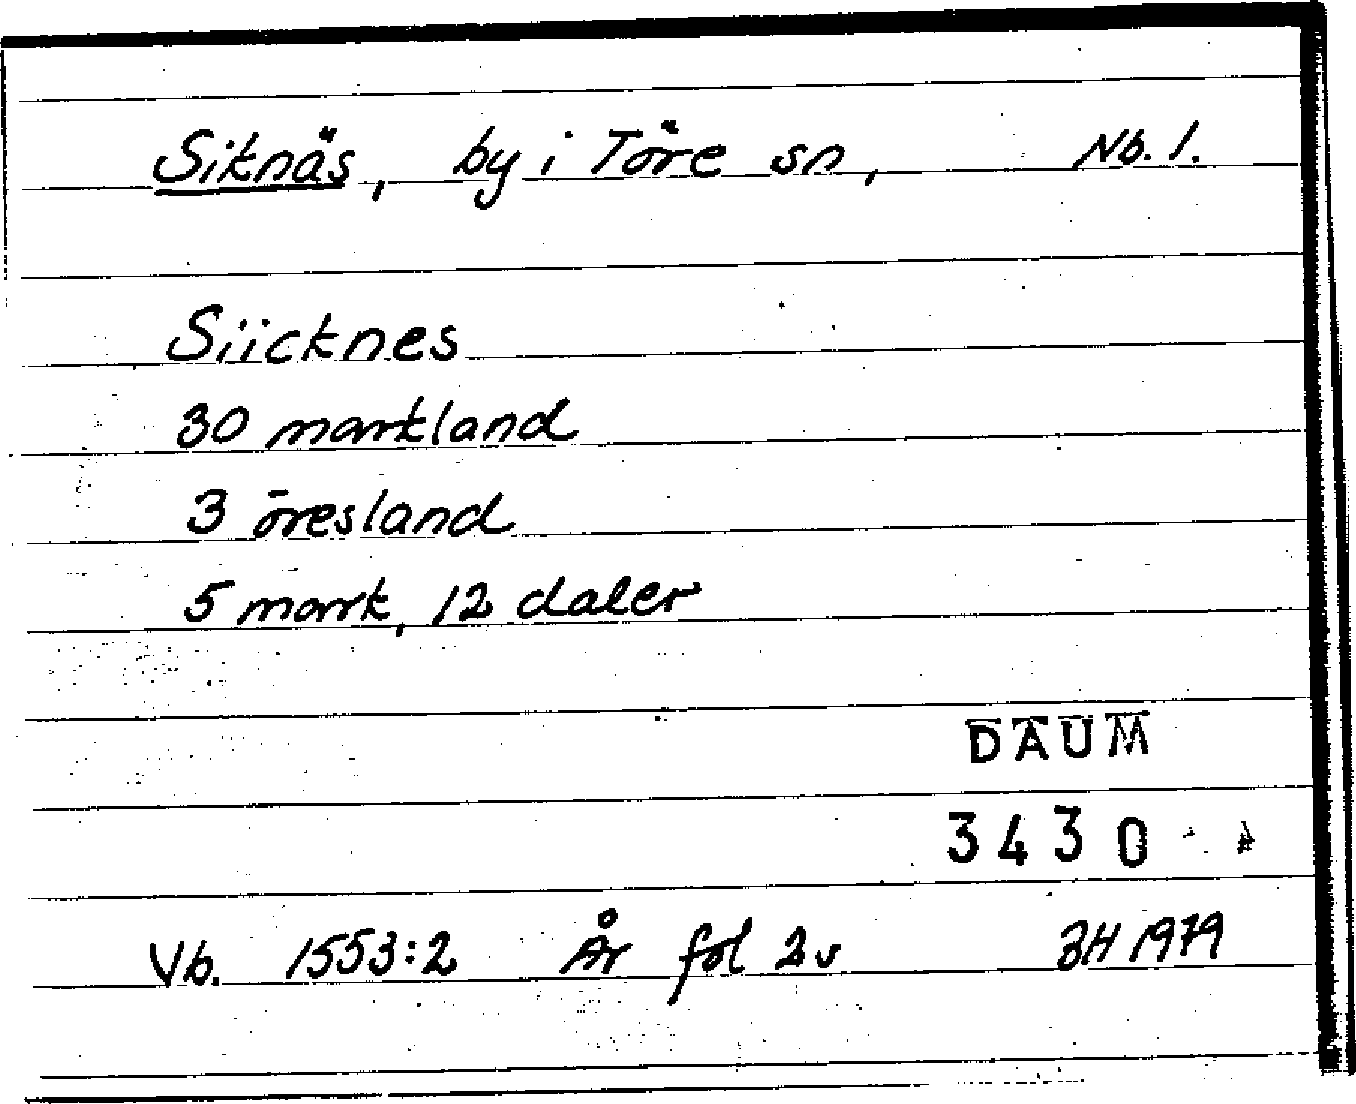 Siknäs, by i Töre sn, Nb. l.
Siicknes
30 markland
3 öresland
5 mark, 12 daler
DAUM
3430
Vb. 1553:2 År fol 2v BH 1979